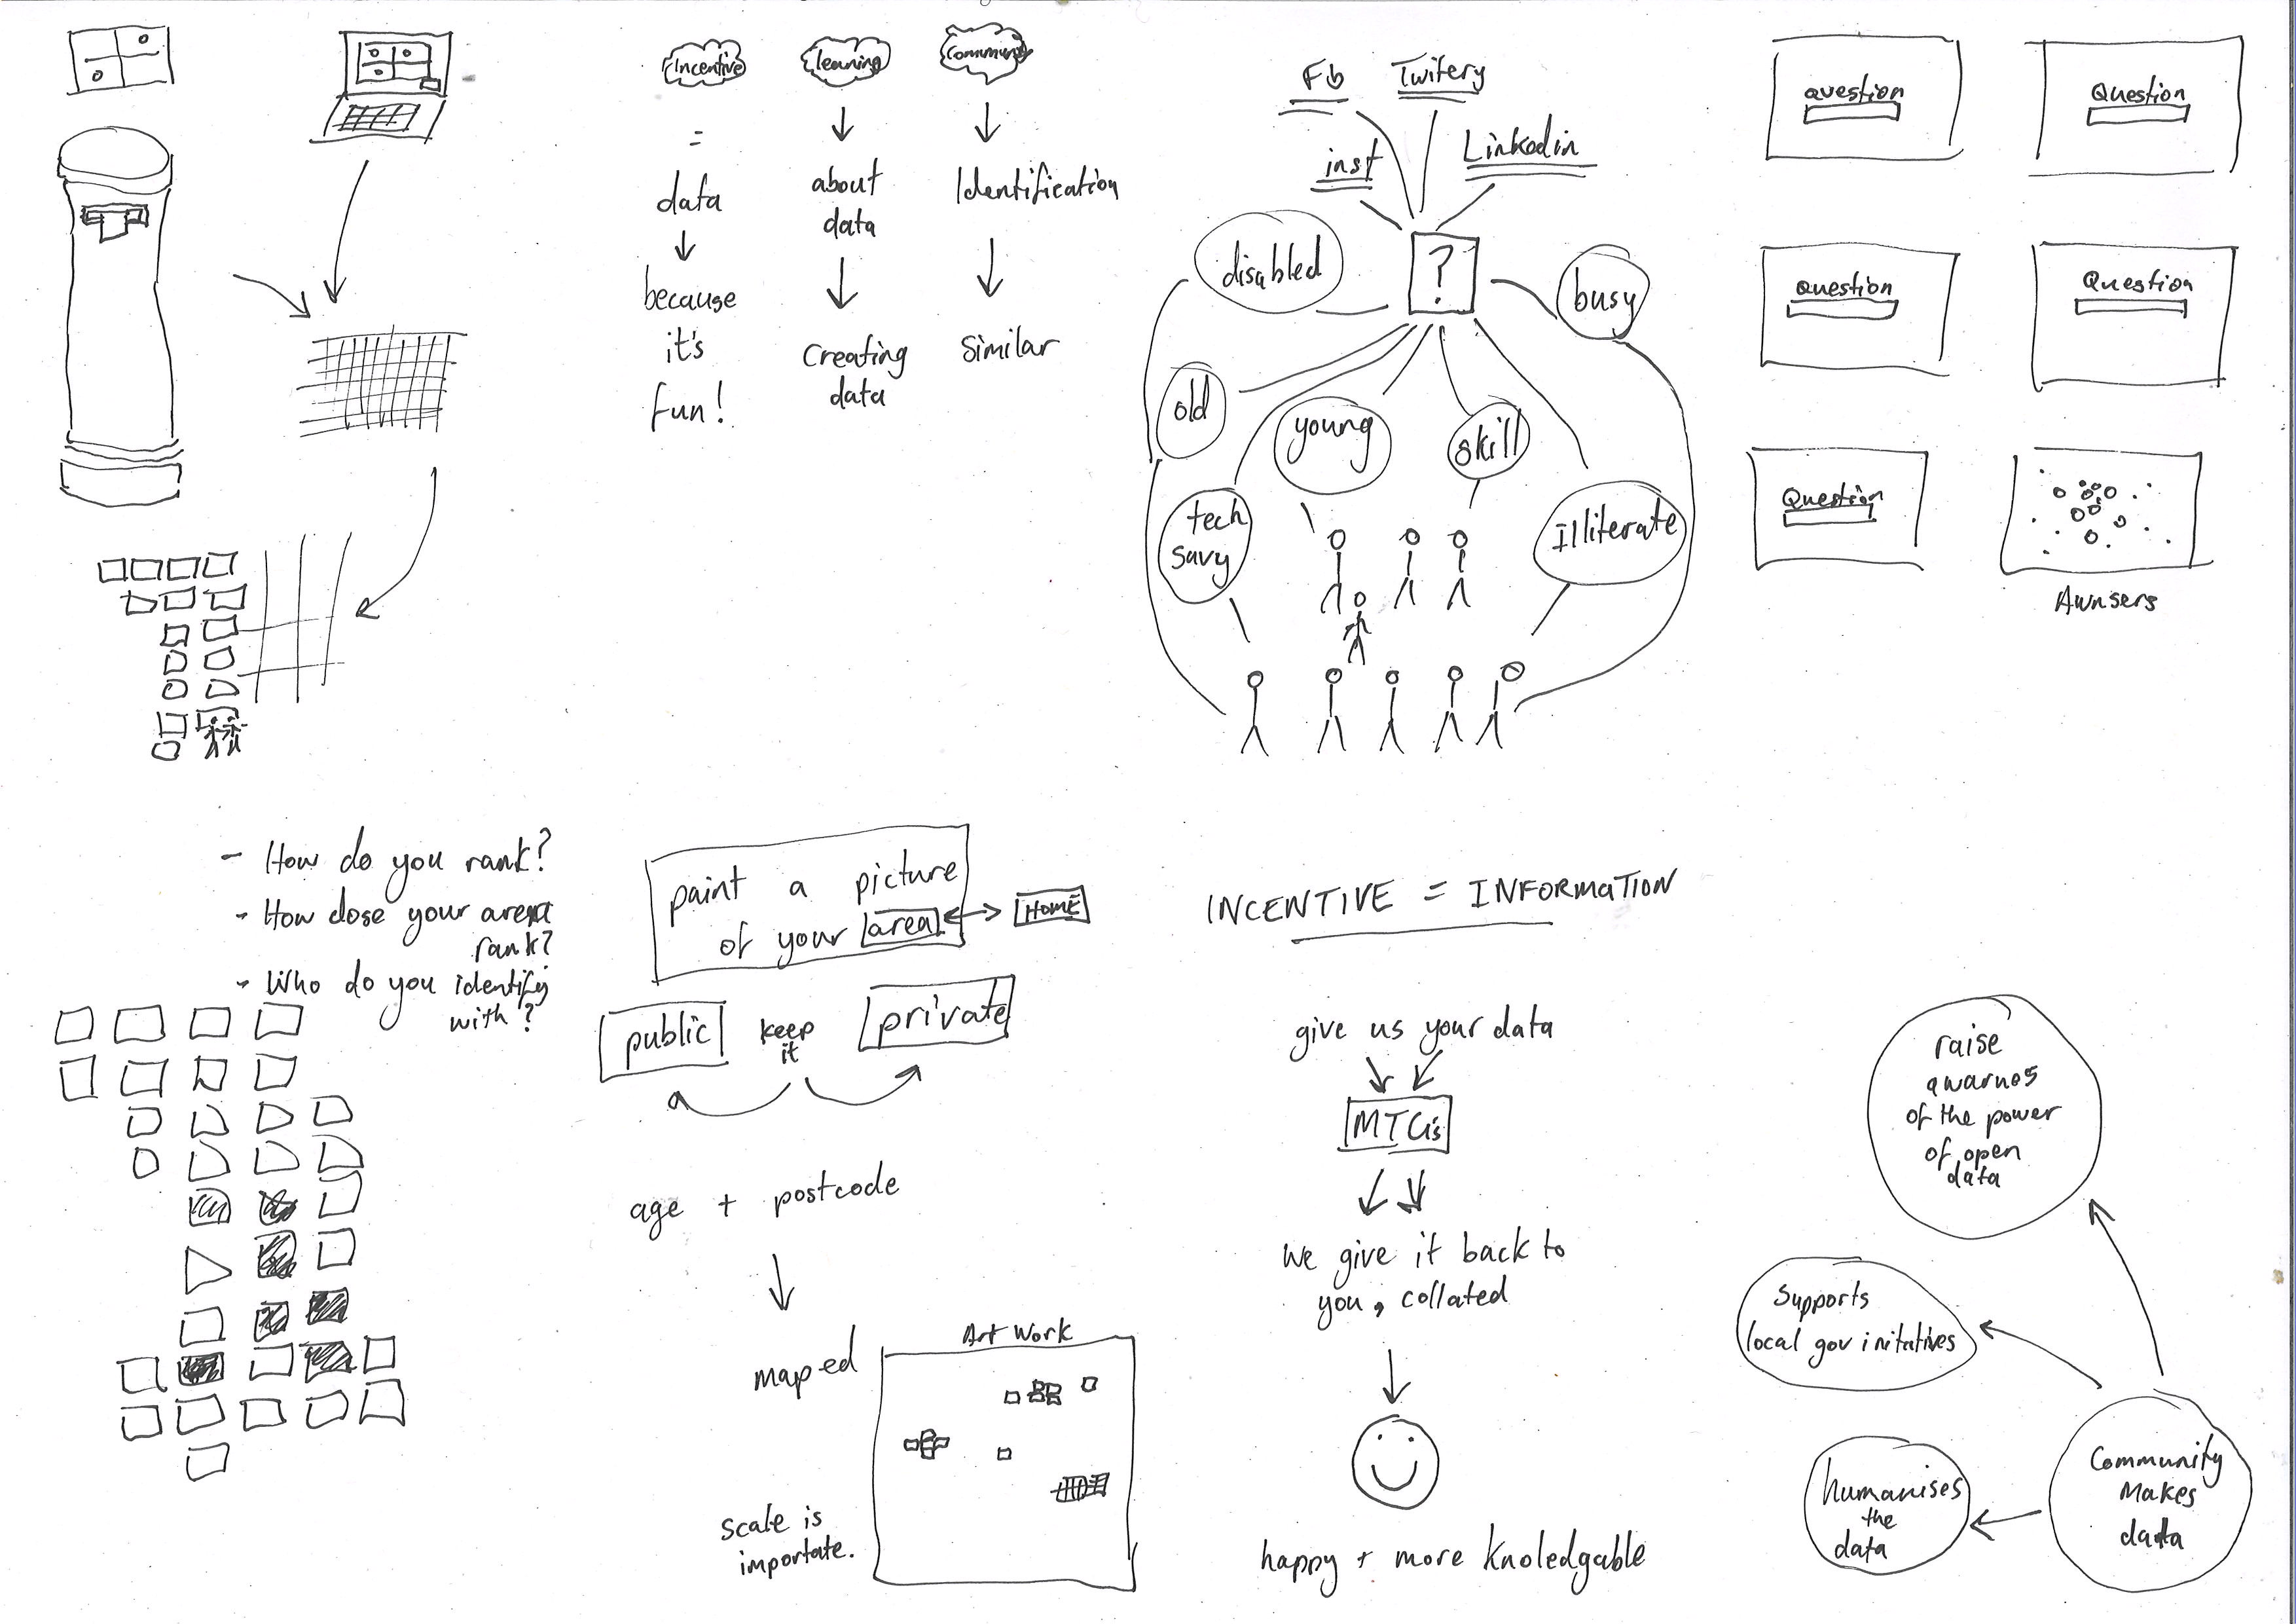 Incentive
=
data
because
it's
fun!
learning
about
data
Creating
data
Community
Identification
Similar
Fb
Twitery
inst
Linkedin
?
disabled
busy
old
young
skill
tech
savy
Illiterate
question
Question
question
Question
Question
Awnsers
- How do you rank?
- How dose your area
rank?
- Who do you identify
with?
paint a picture
of your area
HOME
public
keep
it
private
age + postcode
maped
Art Work
scale is
importate.
INCENTIVE = INFORMATION
give us your data
we give it back to
you, collated
happy + more knoledgable
raise
awarnes
of the power
of open
data
Supports
local gov initatives
humanises
the
data
Community
Makes
data